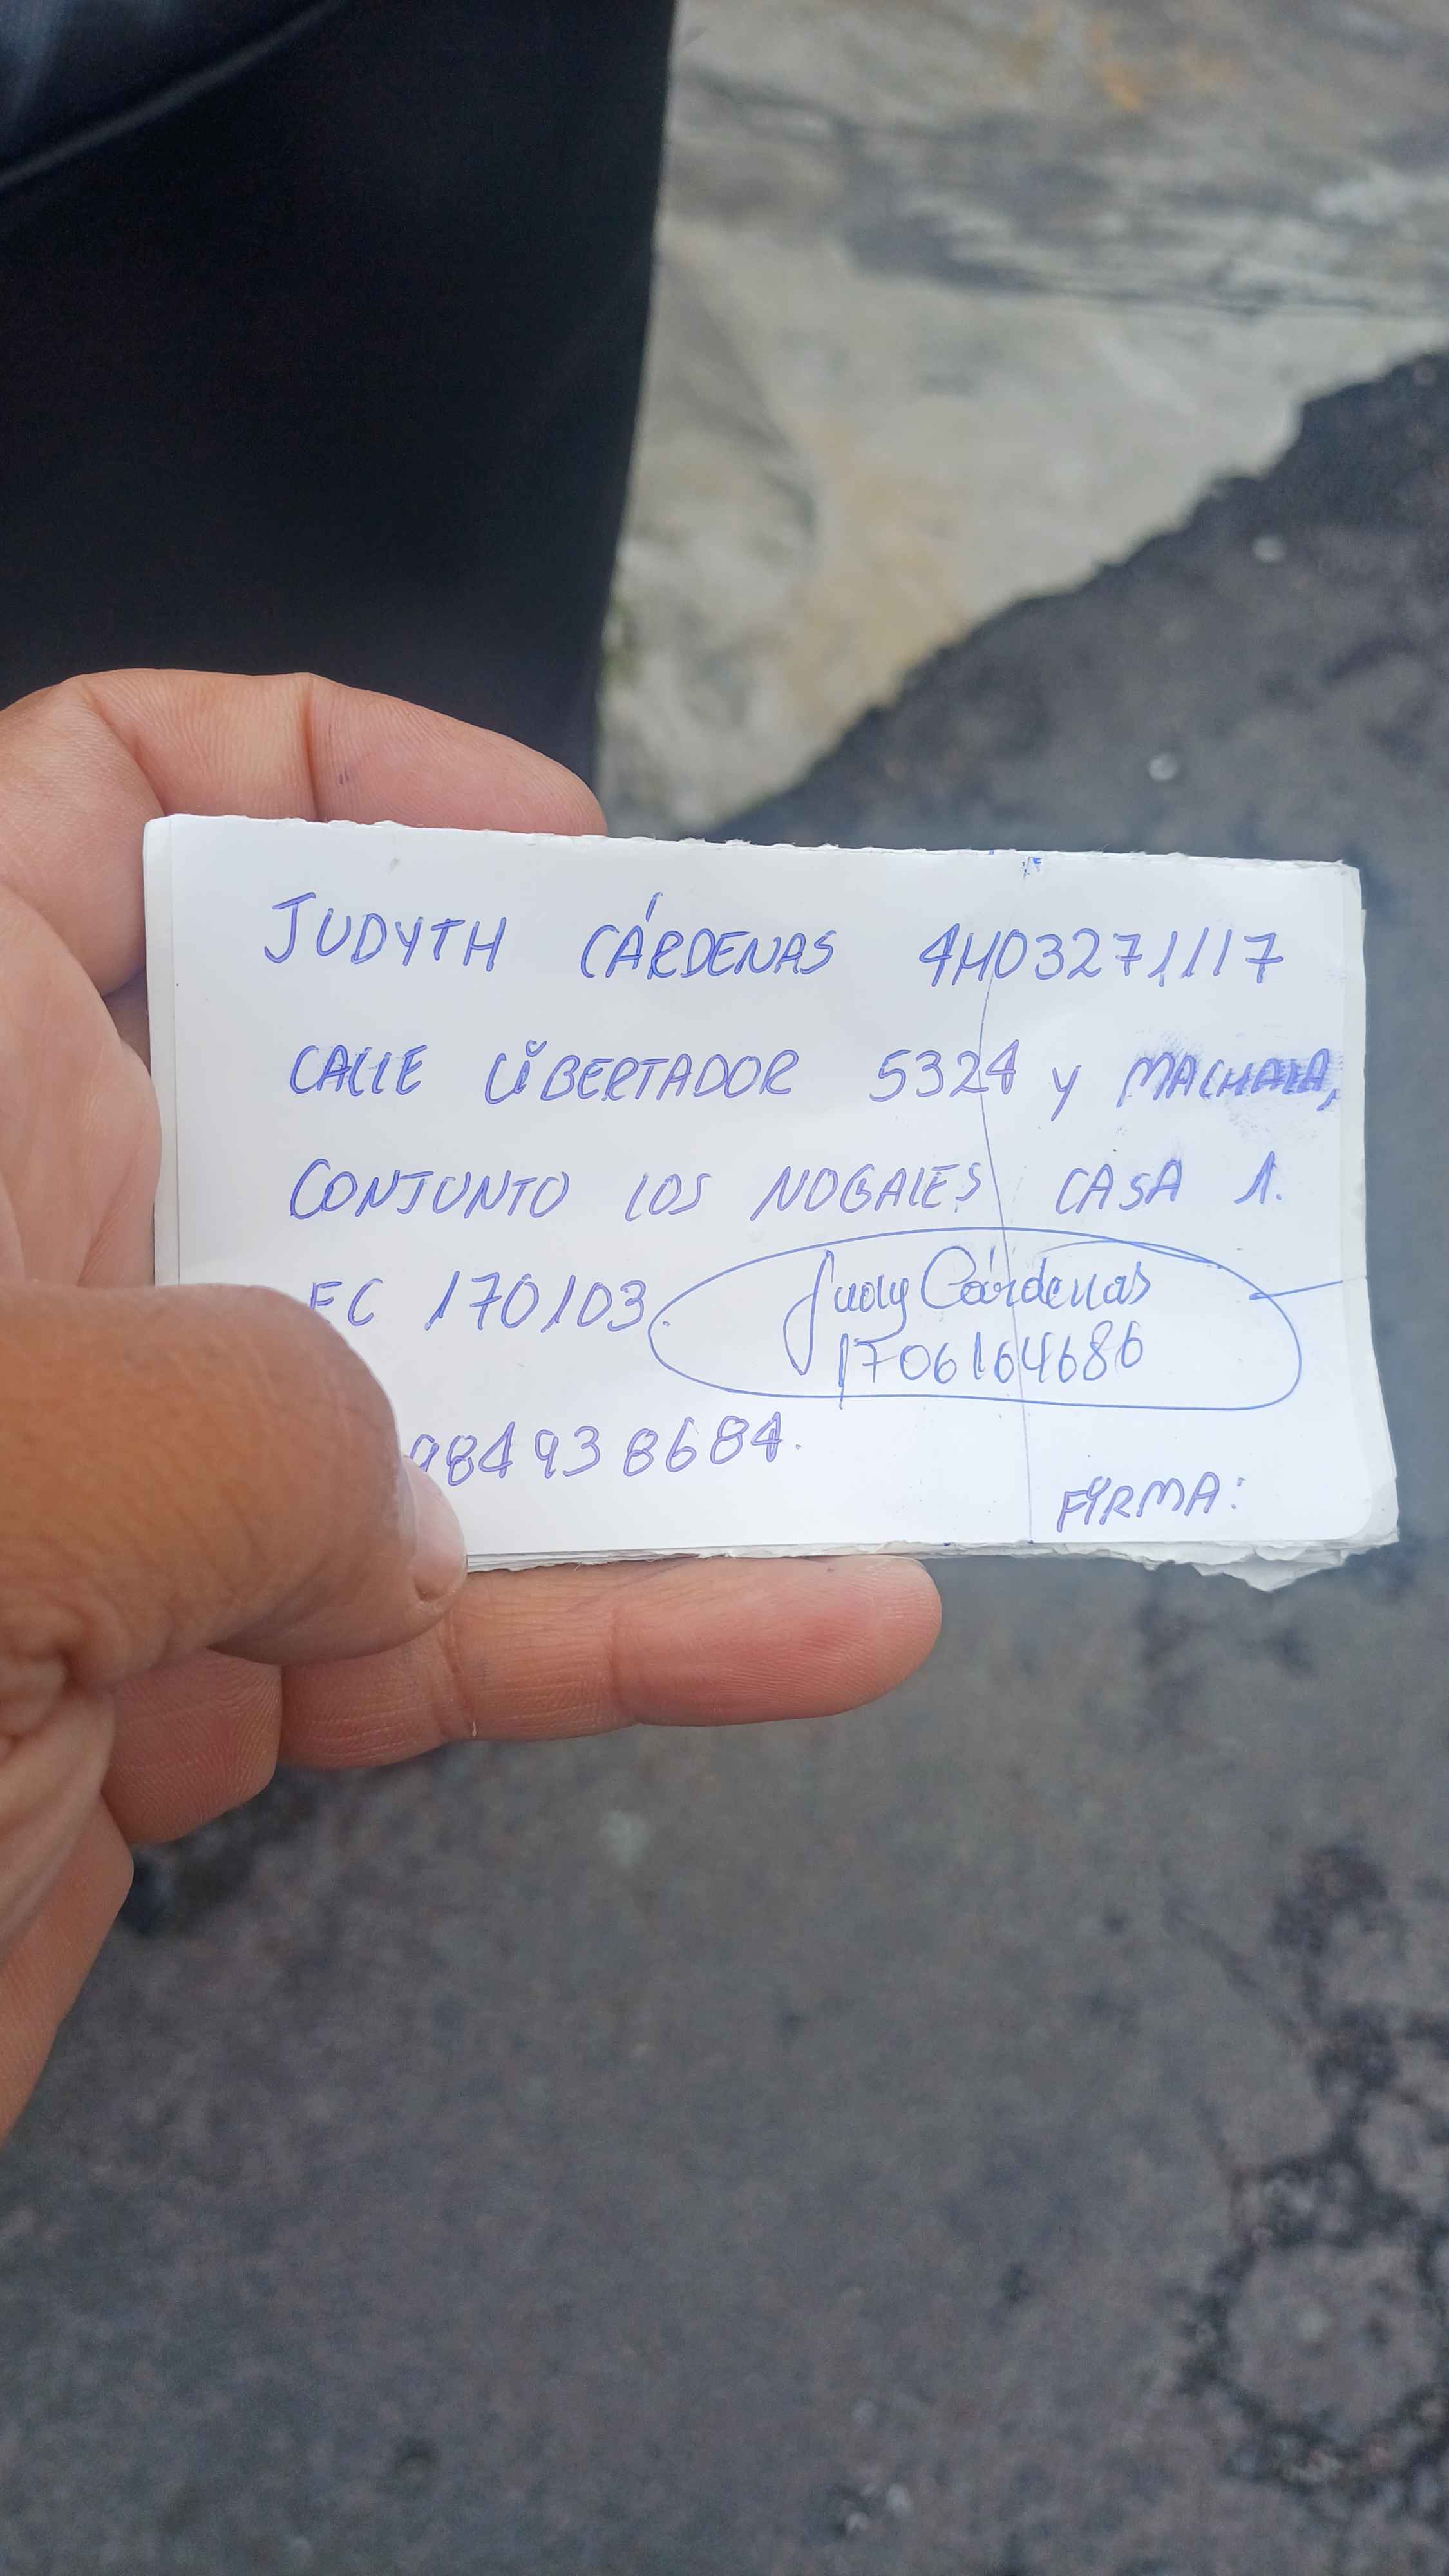 JUDYTH CÁRDENAS 4H03271117
CALLE LIBERTADOR 5324 Y MACHALA,
CONJUNTO LOS NOGALES CASA 1.
EC 170103.
Judy Cárdenas
1706164686
984938684.
FIRMA: